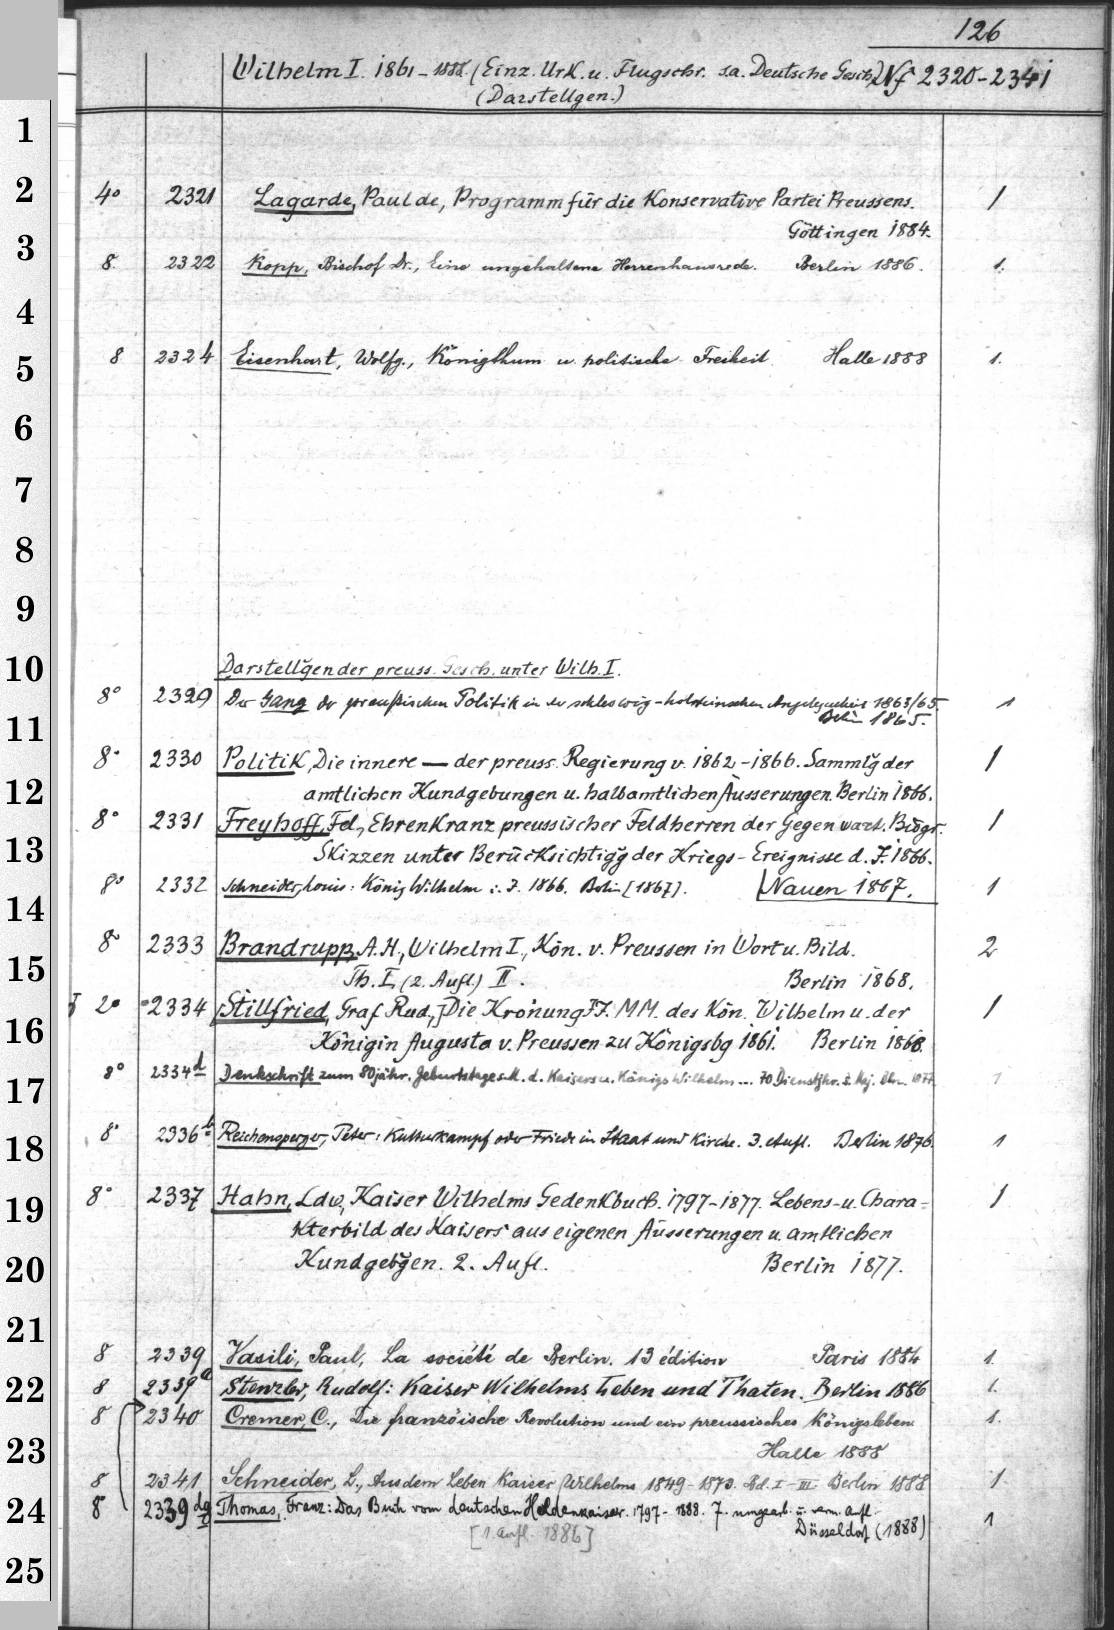 126
Wilhelm I. 1861-1888. (Einz. Urk. u. Flugschr. s.a. Deutsche Gesch.) Nf 2320-2341
(Darstellgen.)
1
2
4° 2321 Lagarde, Paul de, Programm für die Konservative Partei Preussens. 1
Göttingen 1884.
3
8. 2322 Kopp, Bischof Dr., Eine ungehaltene Herrenhausrede. Berlin 1886. 1.
4
8 2324 Eisenhart, Wolfg., Königthum u. politische Freiheit. Halle 1888 1.
5
6
7
8
9
10
Darstellg̃en der preuss. Gesch. unter Wilh. I.
8° 2329 Der Gang der preußischen Politik in der schleswig-holsteinschen Angelegenheit 1863/65. 1
Berlin 1865.
11
8° 2330 Politik, Die innere — der preuss. Regierung v. 1862-1866. Sammlg̃ der 1
12
amtlichen Kundgebungen u. halbamtlichen Äusserungen. Berlin 1866.
8° 2331 Freyhoff, Fd., Ehrenkranz preussischer Feldherren der Gegenwart. Biogr. 1
13
Skizzen unter Berücksichtigg̃ der Kriegs-Ereignisse d. J. 1866.
8° 2332 Schneider, Louis: König Wilhelm i. J. 1866. Berlin [1867]. Nauen 1867. 1
14
8° 2333 Brandrupp, A.H., Wilhelm I., Kön. v. Preussen in Wort u. Bild. 2
15
Th. I, (2. Aufl.) II. Berlin 1868.
2° 2334 [Stillfried, Graf Rud.,] Die Krönung II. MM. des Kön. Wilhelm u. der 1
16
Königin Augusta v. Preussen zu Königsbg 1861. Berlin 1868.
8° 2334 d Denkschrift zum 80jähr. Geburtstage s.M. d. Kaisers u. Königs Wilhelm ... 70 Dienstjhr. s. Maj. 1877. 1
17
8° 2336 b Reichensperger, Peter: Kulturkampf oder Friede in Staat und Kirche. 3. Aufl. Berlin 1876. 1
18
8° 2337 Hahn, Ldw., Kaiser Wilhelms Gedenkbuch. 1797-1877. Lebens- u. Chara= 1
19
kterbild des Kaisers aus eigenen Äusserungen u. amtlichen
20
Kundgebg̃en. 2. Aufl. Berlin 1877.
21
8 2339 Vasili, Paul, La société de Berlin. 13 édition Paris 1884 1.
22
8 2339 a Stenzler, Rudolf: Kaiser Wilhelms Leben und Thaten. Berlin 1886 1.
8 2340 Cremer, C., Die französische Revolution und ein preussisches Königsleben. 1.
23
Halle 1888
8 2341 Schneider, L., Aus dem Leben Kaiser Wilhelms 1849-1873. Bd. I-III Berlin 1888 1.
24
8 2339 dg Thomas, Franz: Das Buch vom deutschen Heldenkaiser. 1797-1888. 7. umgearb. u. verm. Aufl. 1
Düsseldorf (1888)
[1. Aufl. 1886]
25